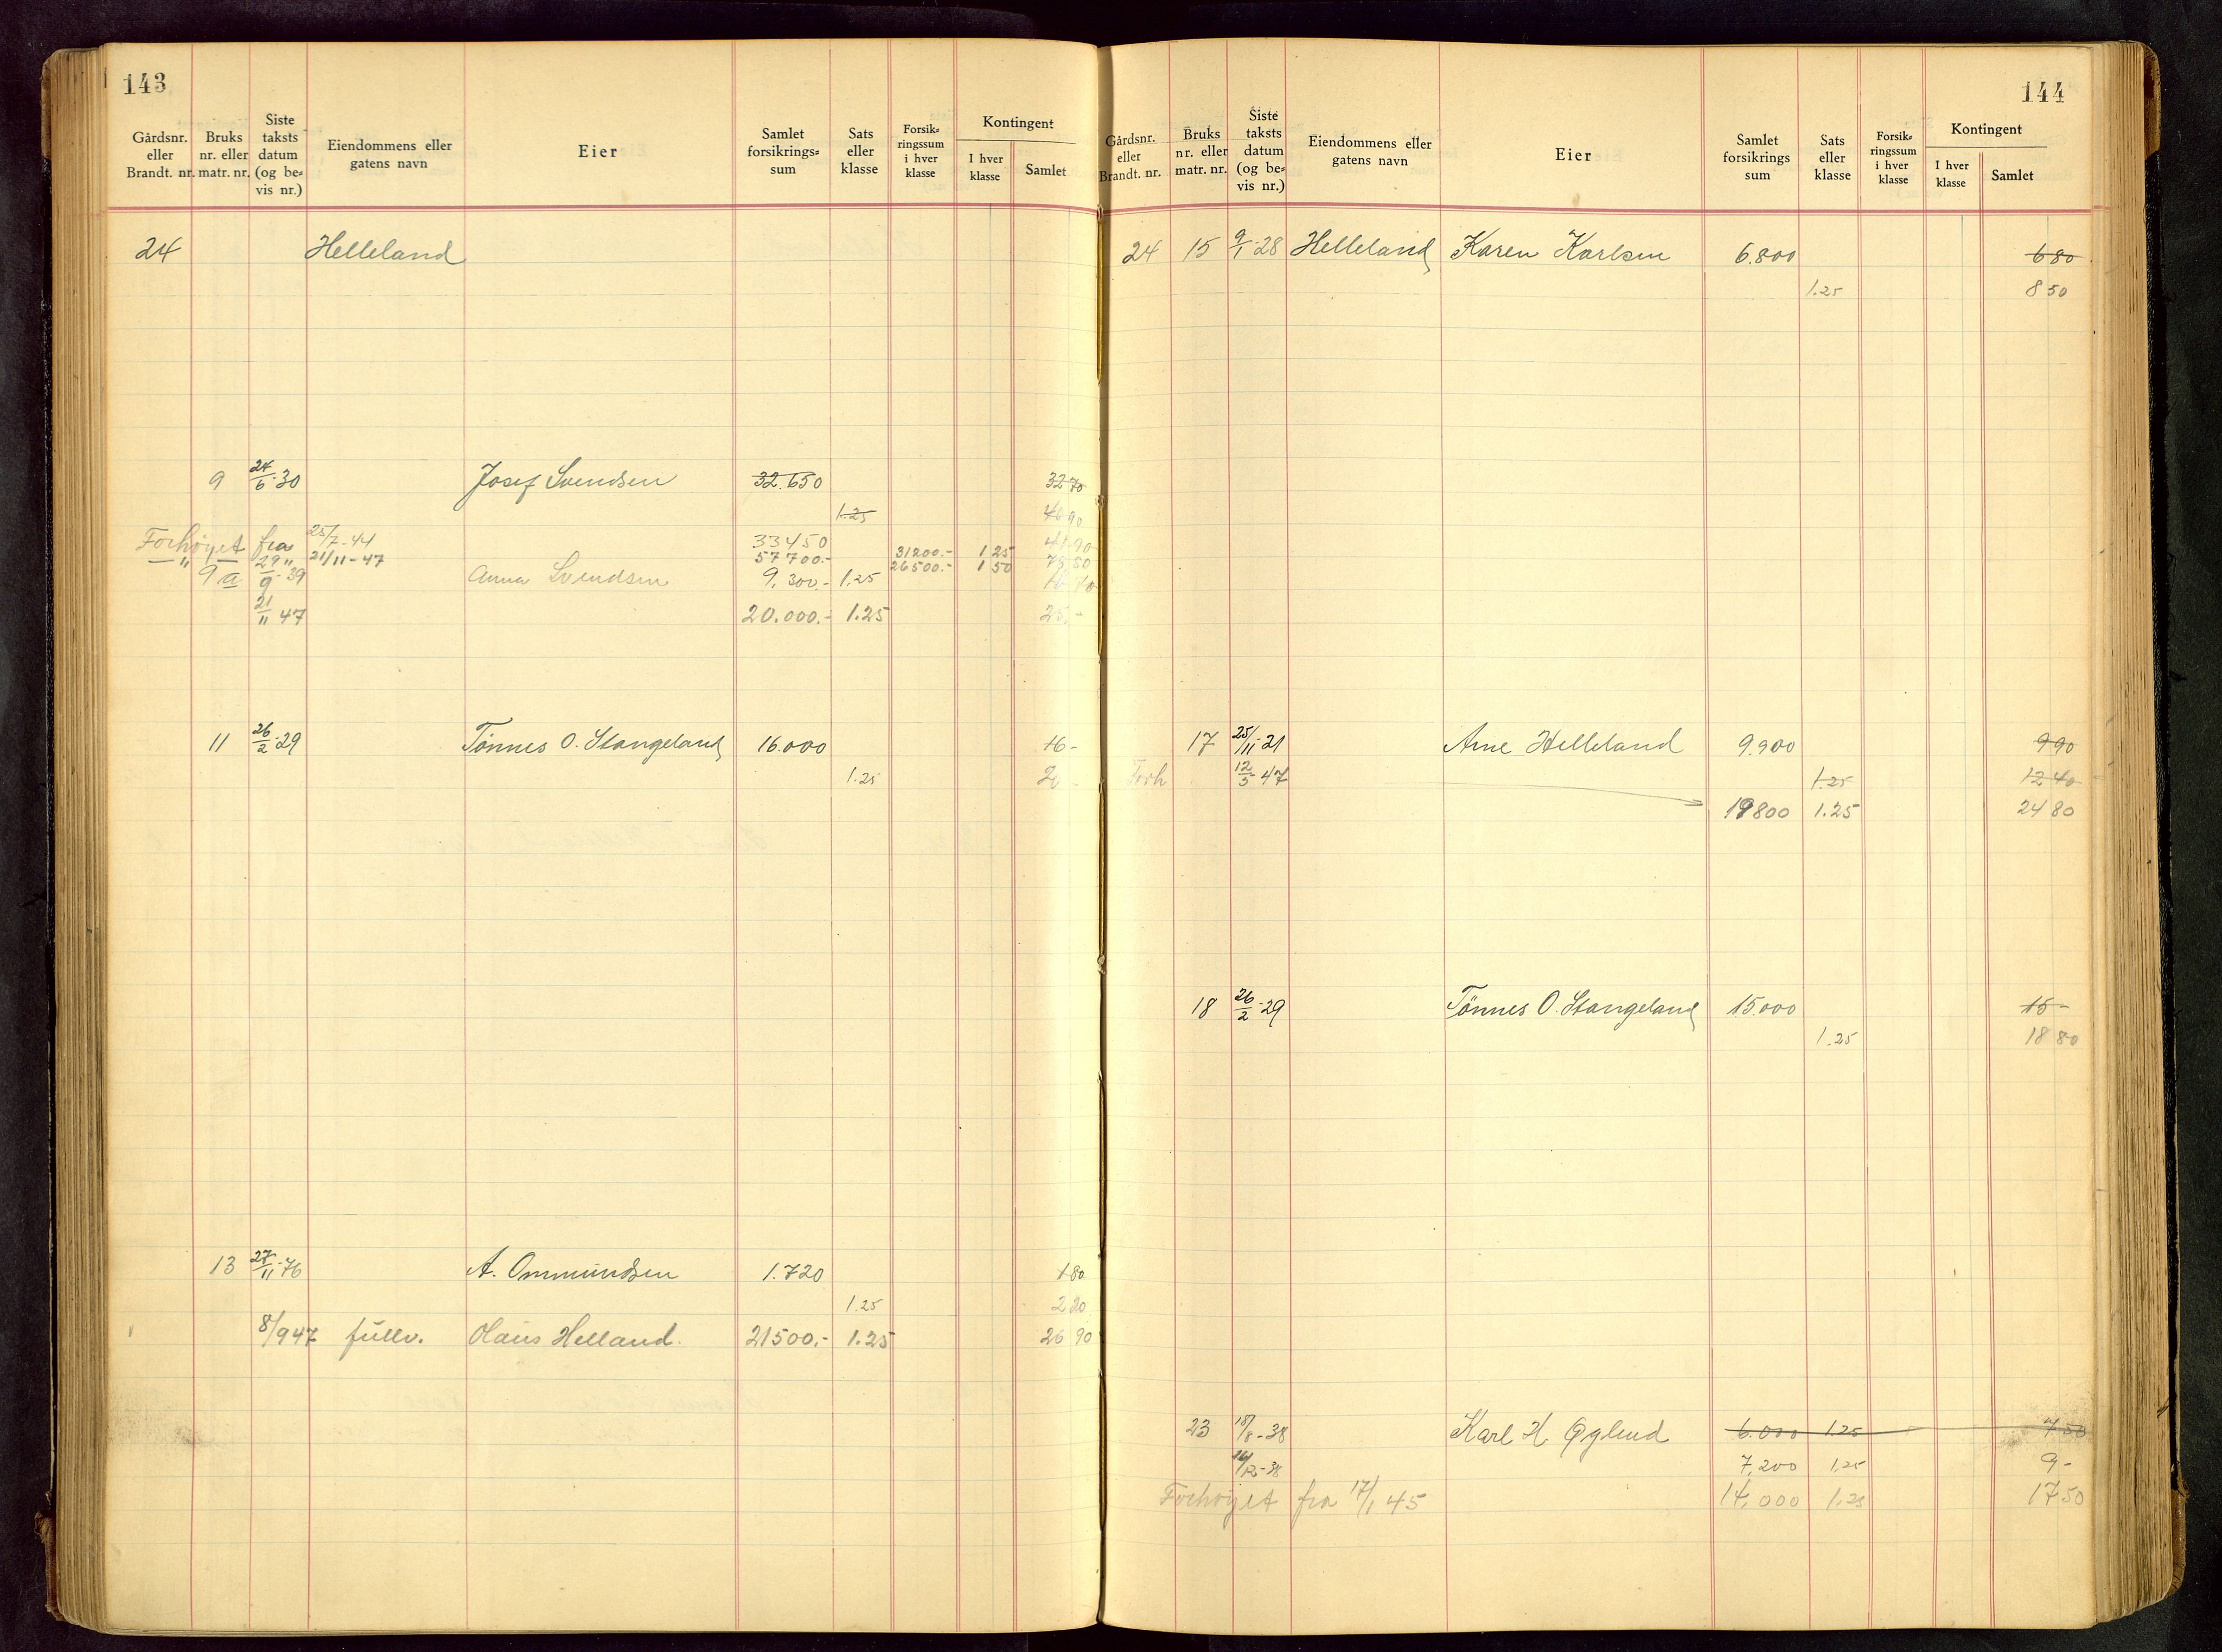 143
Gårdsnr. eller Brandt. nr. Bruks nr. eller matr. nr. Siste taksts datum (og bevis nr.) Eiendommens eller gatens navn Eier Samlet forsikrings= sum Sats eller klasse Forsik= ringssum i hver klasse Kontingent I hver klasse Samlet
24 Helleland
9 24/6-30 Josef Svendsen 32.650 32 70
1.25
Forhöyet fra 25/7-44 33450
— " — " 21/11-47 57700.- 31200.- 1 25
26500.- 1 50
9a 29/9-39 Anna Svendsen 9.300.- 1.25
21/11 47 20.000.- 1.25 25.-
11 26/2-29 Tönnes O. Stangeland 16.000 16-
1.25 20 -
13 27/11-76 A. Ommundsen 1.720 1 80
1.25 2 20
8/9 47 fullv. Olaus Helland. 21500.- 1.25 26 90
144
Gårdsnr. eller Brandt. nr. Bruks nr. eller matr. nr. Siste taksts datum (og be= vis nr.) Eiendommens eller gatens navn Eier Samlet forsikrings sum Sats eller klasse Forsik= ringssum i hver klasse Kontingent I hver klasse Samlet
24 15 9/1-28 Helleland Karen Karlsen 6.800 6 80
1.25 8 50
17 25/11-21 Arne Helleland 9.900 9 90
Forh 12/5 47 1.25 12 40
19800 1.25 24 80
18 26/2-29 Tönnes O. Stangeland 15.000 15-
1.25 18 80
23 18/8-38 Karl H. Öglend 6.000 1.25 7 50
7,200 1,25 9-
Forhöyet fra 17/1 45 14,000 1.25 17 50